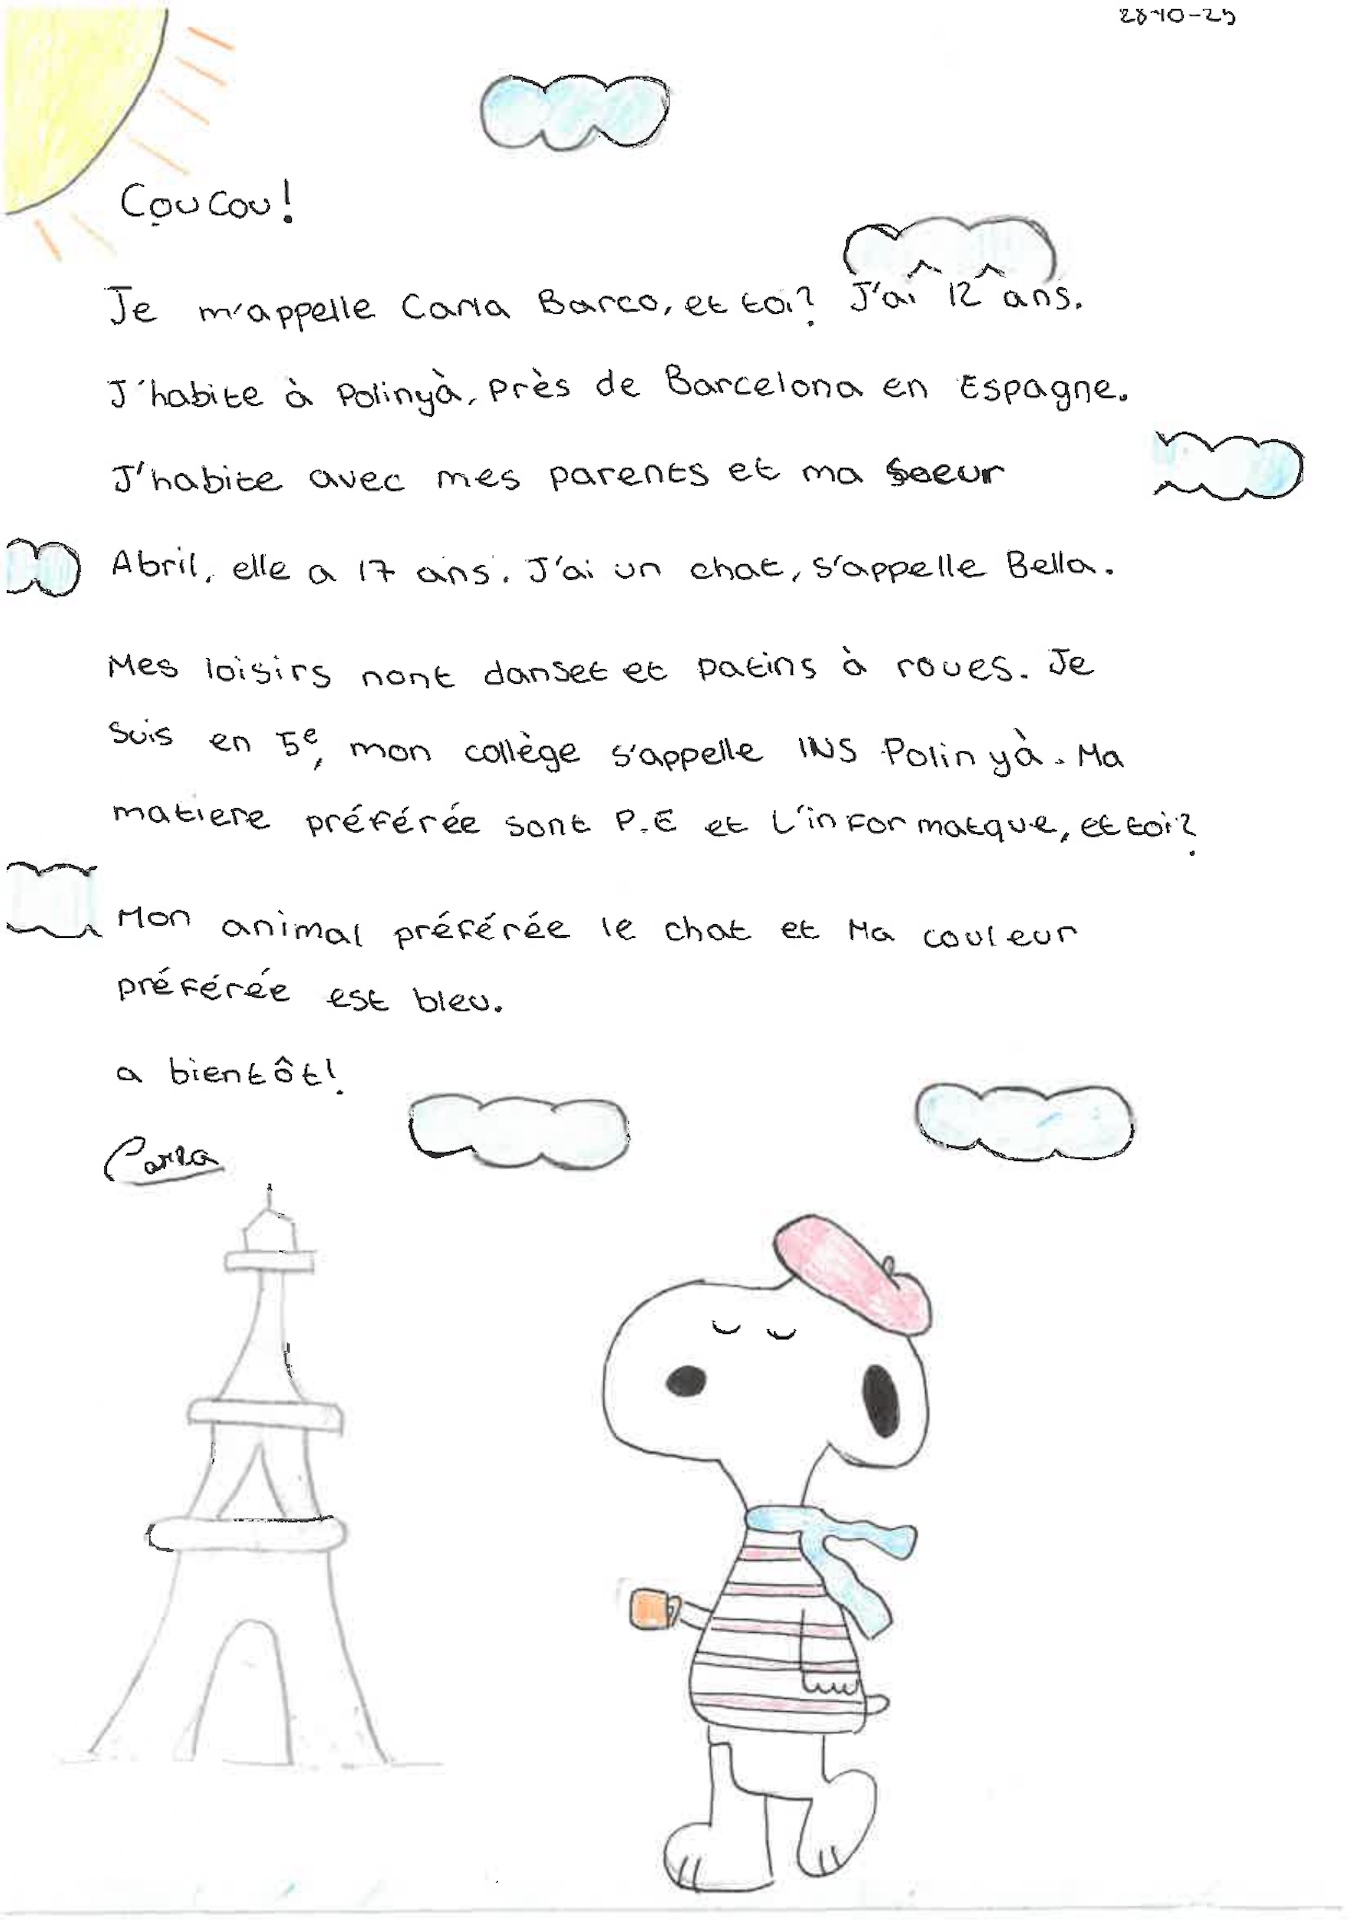 28-10-25
Coucou!
Je m'appelle Carla Barco, et toi? J'ai 12 ans.
J'habite à Polinyà, près de Barcelona en Espagne.
J'habite avec mes parents et ma soeur
Abril, elle a 17 ans. J'ai un chat, s'appelle Bella.
Mes loisirs nont danset et patins à roues. Je
suis en 5e, mon collège s'appelle INS Polinyà. Ma
matiere préférée sont P.E et L'informatque, et toi?
Mon animal préférée le chat et Ma couleur
préférée est bleu.
a bientôt!
Carla